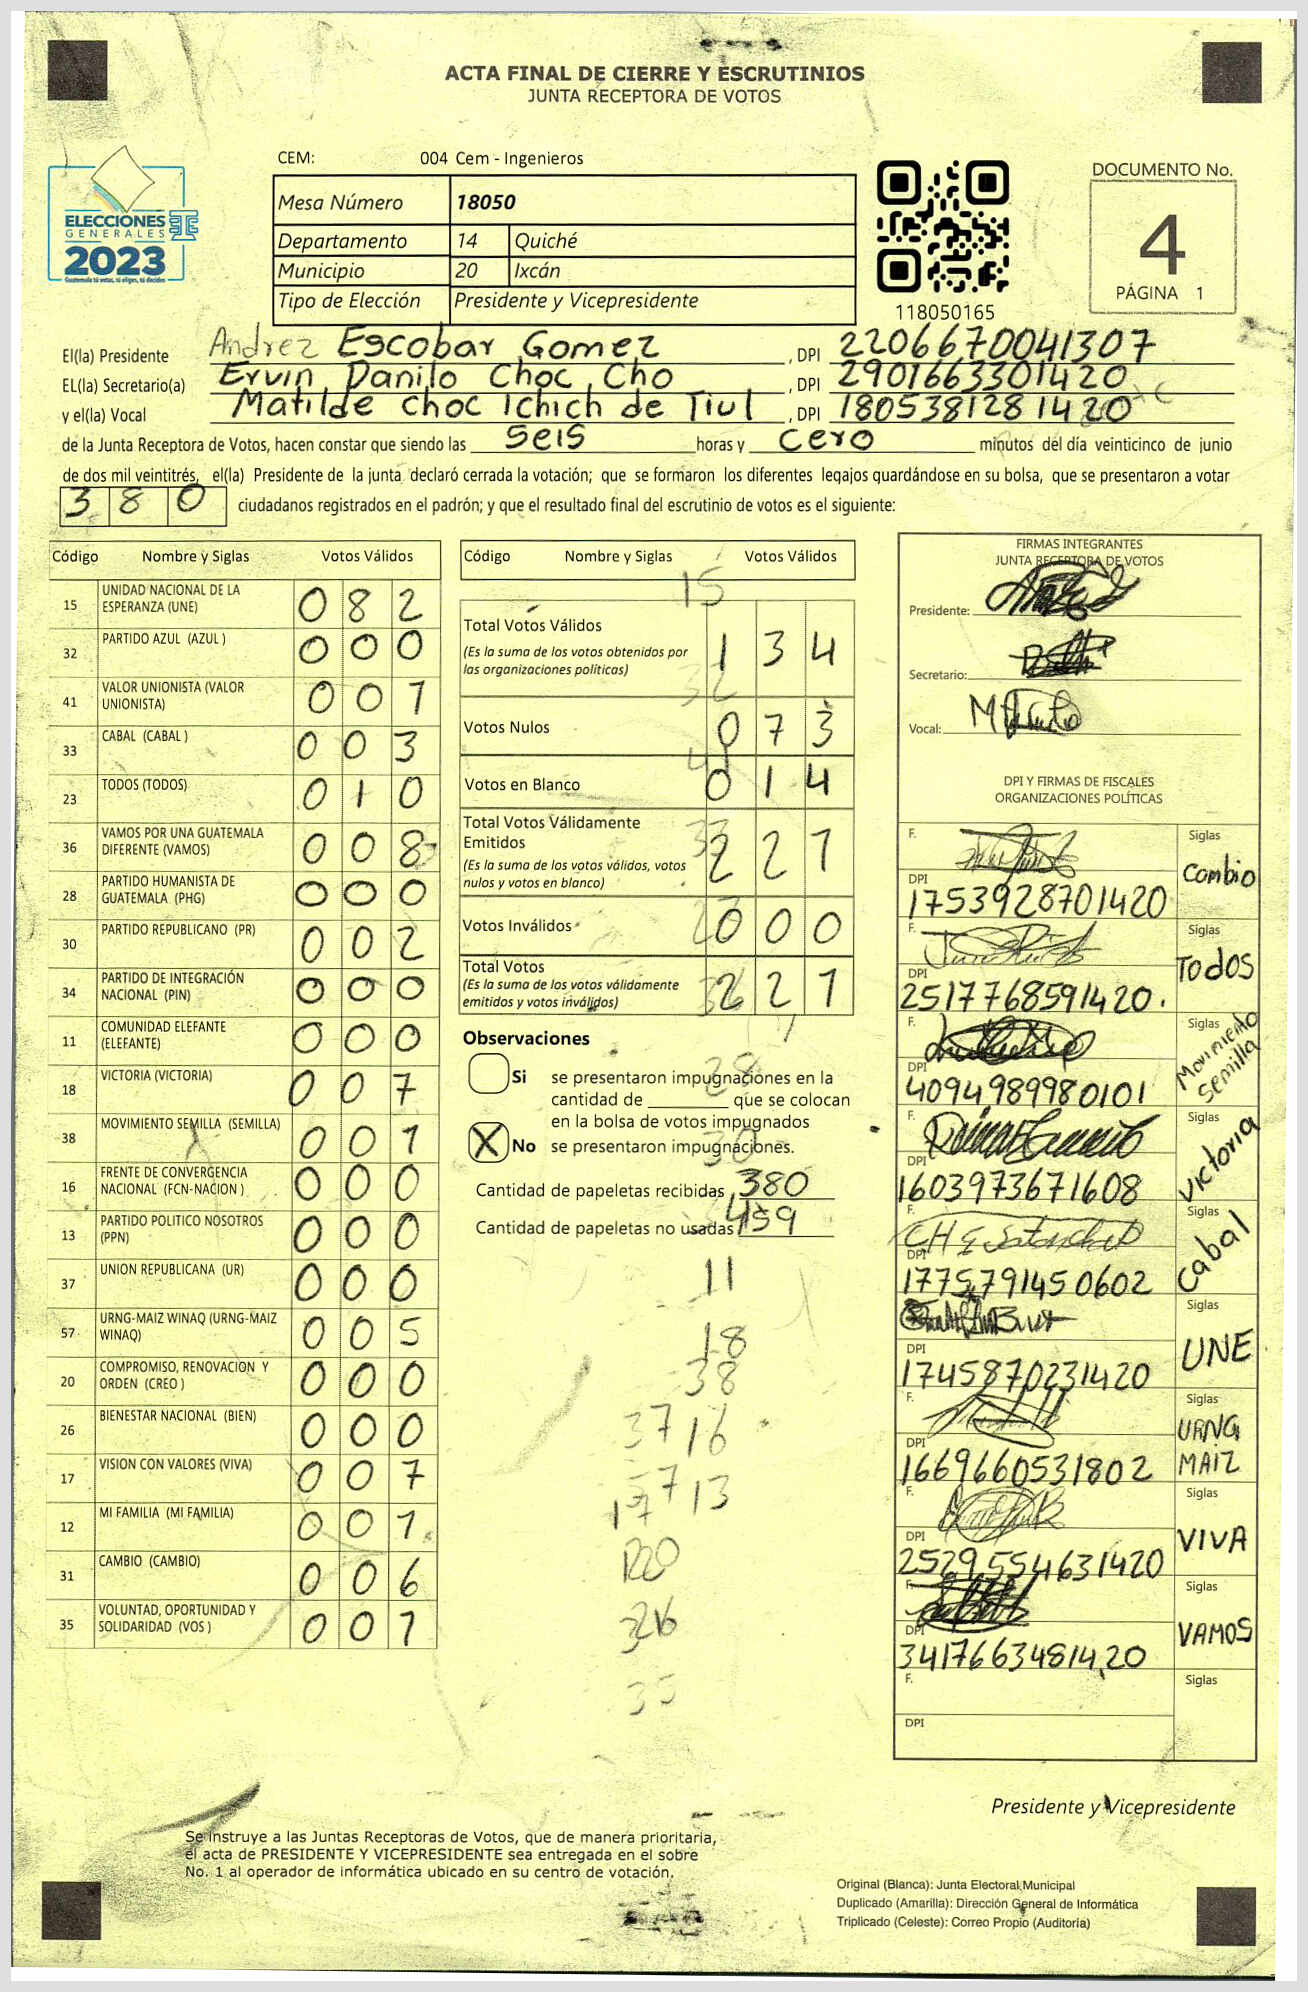 ACTA FINAL DE CIERRE Y ESCRUTINIOS
JUNTA RECEPTORA DE VOTOS
ELECCIONES
GENERALES
2023
Guatemala tú votas, tú eliges, tú decides
CEM: 004 Cem - Ingenieros
Mesa Número 18050
Departamento 14 Quiché
Municipio 20 Ixcán
Tipo de Elección Presidente y Vicepresidente
118050165
DOCUMENTO No.
4
PÁGINA 1
El(la) Presidente Andrez Escobar Gomez , DPI 2206670041307
EL(la) Secretario(a) Ervin Danilo Choc Cho , DPI 2901663301420
y el(la) Vocal Matilde choc Ichich de Tiul , DPI 1805381281420
de la Junta Receptora de Votos, hacen constar que siendo las seis horas y cero minutos del día veinticinco de junio
de dos mil veintitrés, el(la) Presidente de la junta declaró cerrada la votación; que se formaron los diferentes legajos guardándose en su bolsa, que se presentaron a votar
380 ciudadanos registrados en el padrón; y que el resultado final del escrutinio de votos es el siguiente:
Código Nombre y Siglas Votos Válidos
15 UNIDAD NACIONAL DE LA ESPERANZA (UNE) 082
32 PARTIDO AZUL (AZUL ) 000
41 VALOR UNIONISTA (VALOR UNIONISTA) 001
33 CABAL (CABAL ) 003
23 TODOS (TODOS) 010
36 VAMOS POR UNA GUATEMALA DIFERENTE (VAMOS) 008
28 PARTIDO HUMANISTA DE GUATEMALA (PHG) 000
30 PARTIDO REPUBLICANO (PR) 002
34 PARTIDO DE INTEGRACIÓN NACIONAL (PIN) 000
11 COMUNIDAD ELEFANTE (ELEFANTE) 000
18 VICTORIA (VICTORIA) 007
38 MOVIMIENTO SEMILLA (SEMILLA) 001
16 FRENTE DE CONVERGENCIA NACIONAL (FCN-NACION ) 000
13 PARTIDO POLITICO NOSOTROS (PPN) 000
37 UNION REPUBLICANA (UR) 000
57 URNG-MAIZ WINAQ (URNG-MAIZ WINAQ) 005
20 COMPROMISO, RENOVACION Y ORDEN (CREO ) 000
26 BIENESTAR NACIONAL (BIEN) 000
17 VISION CON VALORES (VIVA) 007
12 MI FAMILIA (MI FAMILIA) 001
31 CAMBIO (CAMBIO) 006
35 VOLUNTAD, OPORTUNIDAD Y SOLIDARIDAD (VOS ) 001
Código Nombre y Siglas Votos Válidos
15
Total Votos Válidos 134
(Es la suma de los votos obtenidos por
las organizaciones políticas)
32
Votos Nulos 073
Votos en Blanco 014
Total Votos Válidamente
Emitidos 221
(Es la suma de los votos válidos, votos
nulos y votos en blanco)
Votos Inválidos 000
Total Votos 221
(Es la suma de los votos válidamente
emitidos y votos inválidos)
Observaciones
Si se presentaron impugnaciones en la
cantidad de ________ que se colocan
en la bolsa de votos impugnados
X No se presentaron impugnaciones.
Cantidad de papeletas recibidas 380
Cantidad de papeletas no usadas 159
11
18
38
37 16
57 13
17
20
35
FIRMAS INTEGRANTES
JUNTA RECEPTORA DE VOTOS
Presidente:
Secretario:
Vocal:
DPI Y FIRMAS DE FISCALES
ORGANIZACIONES POLÍTICAS
F. Siglas Cambio
DPI 1753928701420
F. Siglas Todos
DPI 2517768591420.
F. Siglas Movimiento Semilla
DPI 4094989980101
F. Siglas Victoria
DPI 1603973671608
F. Siglas Cabal
DPI 1775791450602
Siglas UNE
DPI 1745870231420
F. Siglas URNG MAIZ
DPI 1669660531802
F. Siglas VIVA
DPI 2529554631420
F. Siglas VAMOS
DPI 3417663481420
F. Siglas
DPI
Presidente y Vicepresidente
Se instruye a las Juntas Receptoras de Votos, que de manera prioritaria,
el acta de PRESIDENTE Y VICEPRESIDENTE sea entregada en el sobre
No. 1 al operador de informática ubicado en su centro de votación.
Original (Blanca): Junta Electoral Municipal
Duplicado (Amarilla): Dirección General de Informática
Triplicado (Celeste): Correo Propio (Auditoría)